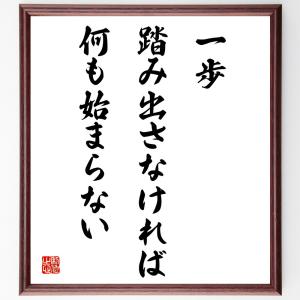 一歩
踏み出さなければ
何も始まらない